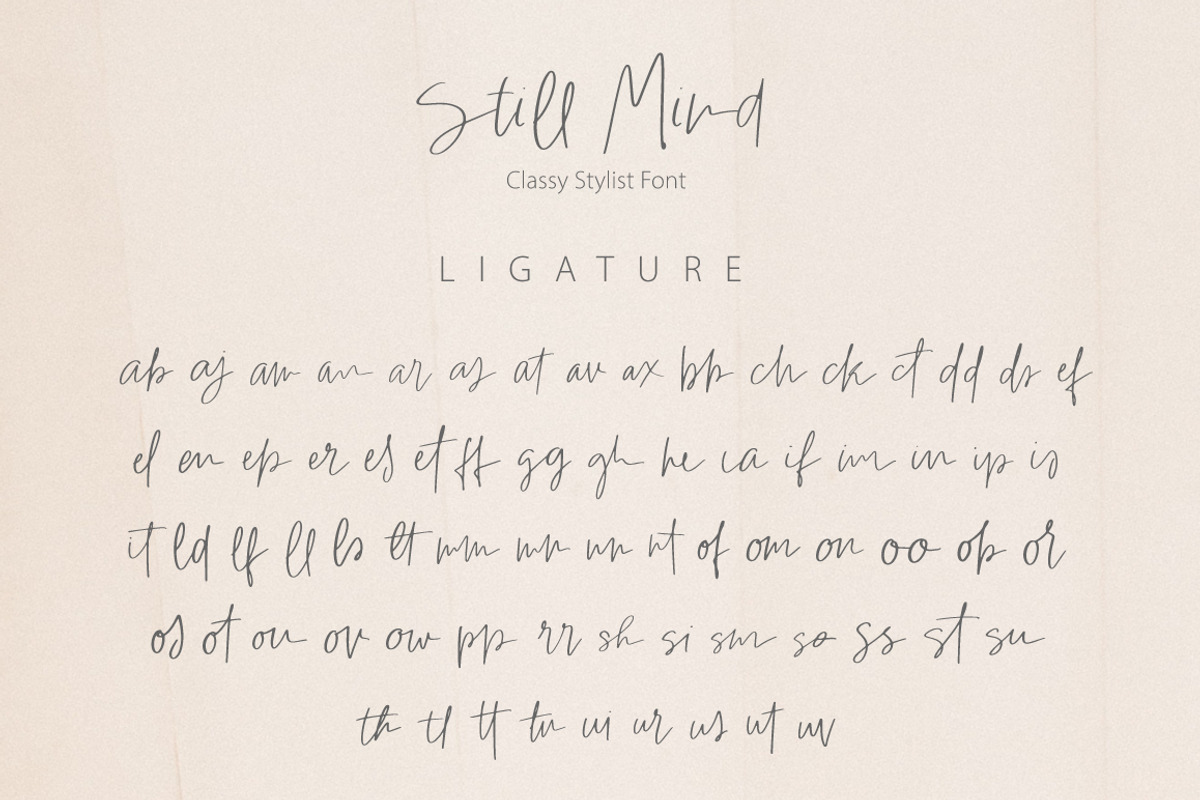 Still Mind
Classy Stylist Font
LIGATURE
ab aj am an ar as at av ax bb ch ck ct dd ds ef
el en ep er es et ff gg gh he ia if im in ip is
it ld lf ll ls lt mm mn nn nt of om on oo op or
os ot ou ov ow pp rr sh si sm so ss st su
th tl tt tu ui ur us ut uv